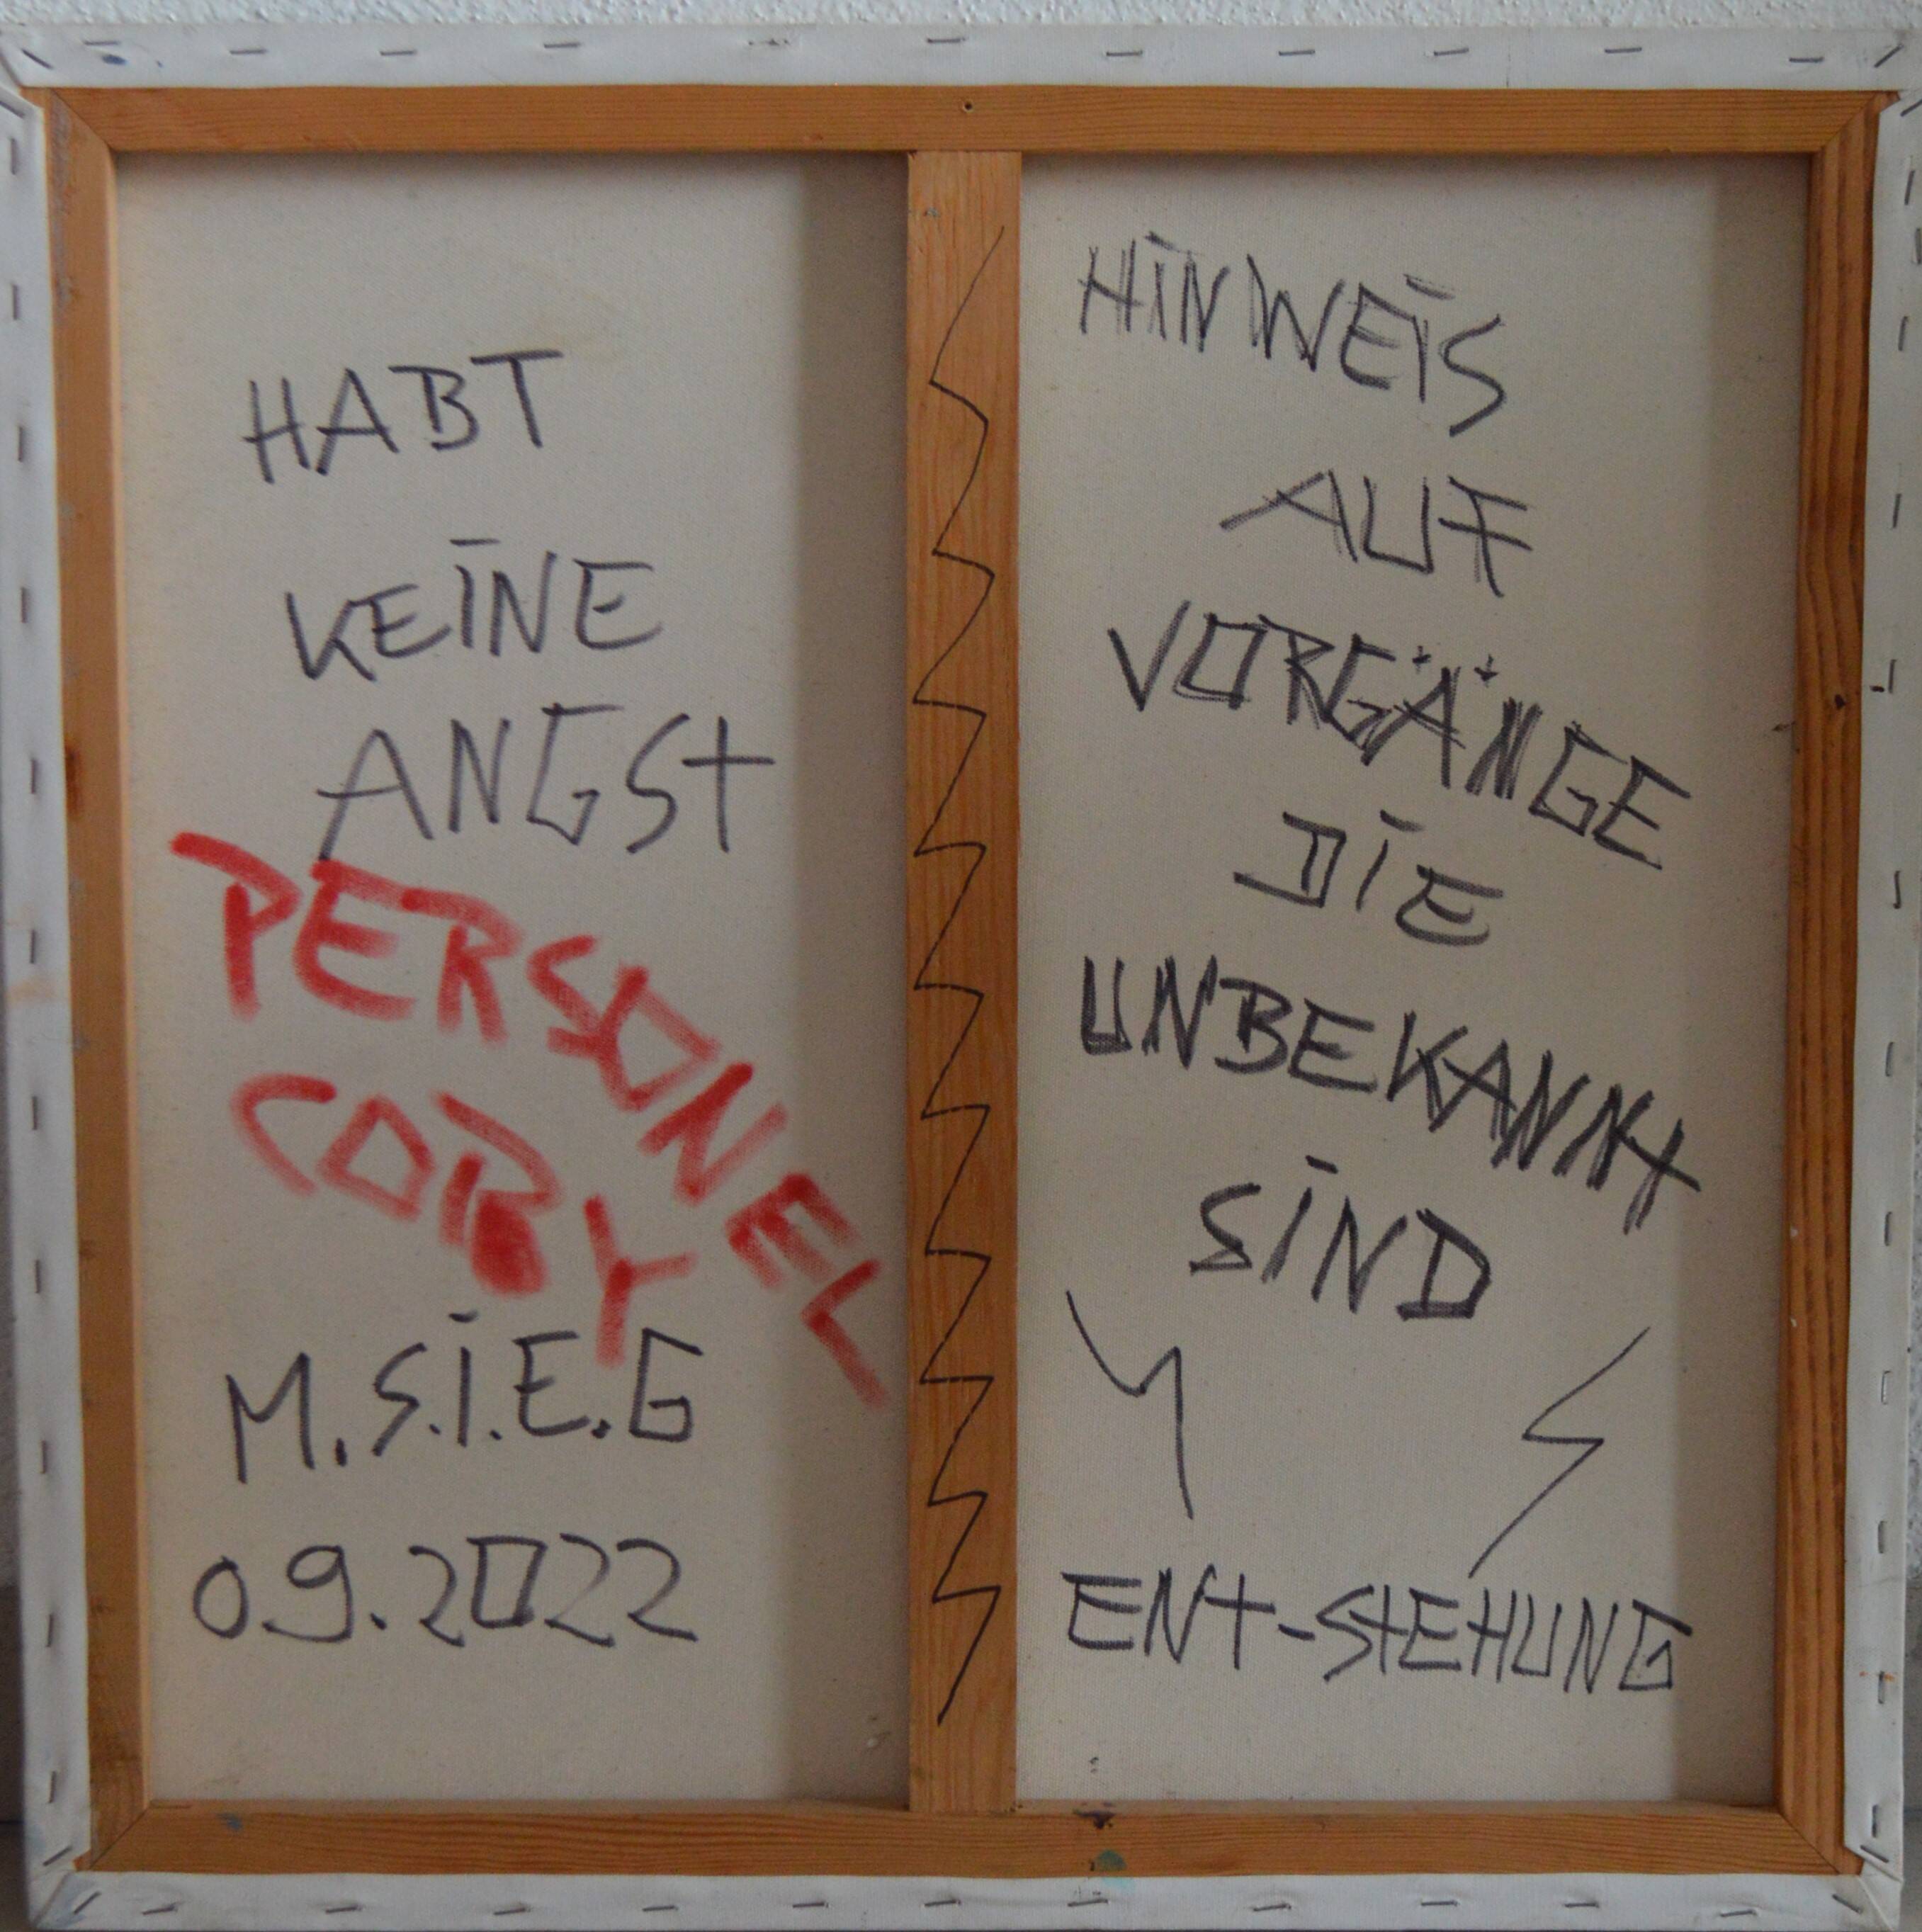 HABT
KEINE
ANGST
PERSONEL
CORY
M.S.I.E.G
09.2022
HINWEIS
AUF
VORGÄNGE
DIE
UNBEKANNT
SIND
ENT-STEHUNG